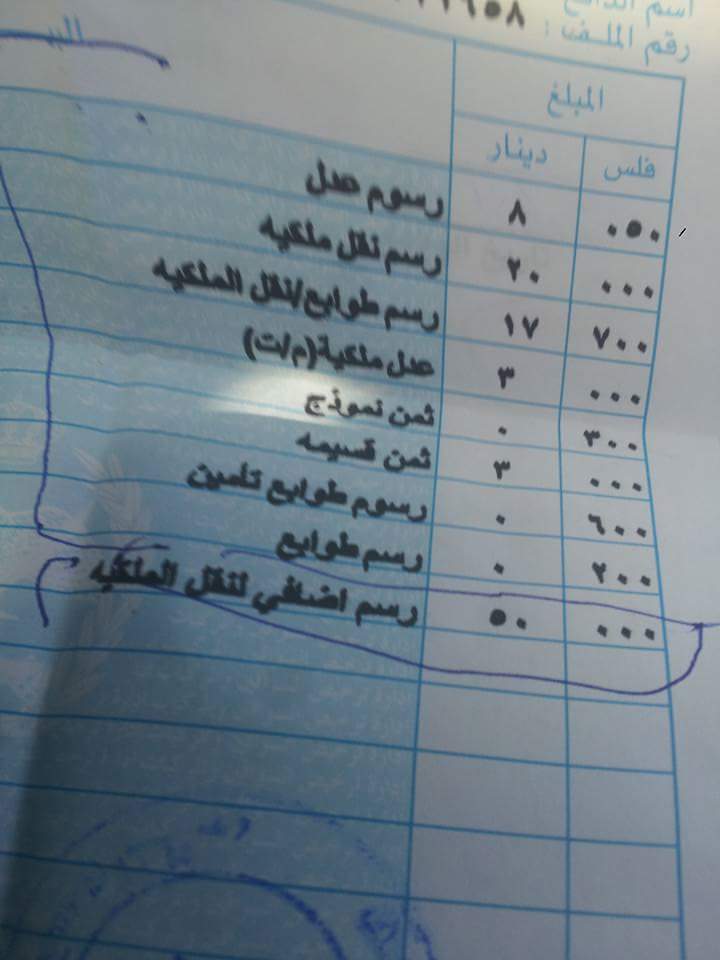 اسم الدافع
رقم الملف :
البيـ
المبلغ
فلس دينار
٠٥٠ ٨ رسوم عدل
٠٠٠ ٢٠ رسم نقل ملكيه
٧٠٠ ١٧ رسم طوابع/نقل الملكيه
٠٠٠ ٣ عدل ملكية(م/ت)
٣٠٠ ٠ ثمن نموذج
٠٠٠ ٣ ثمن قسيمه
٦٠٠ ٠ رسوم طوابع تأمين
٢٠٠ ٠ رسم طوابع
٠٠٠ ٥٠ رسم اضافي لنقل الملكيه